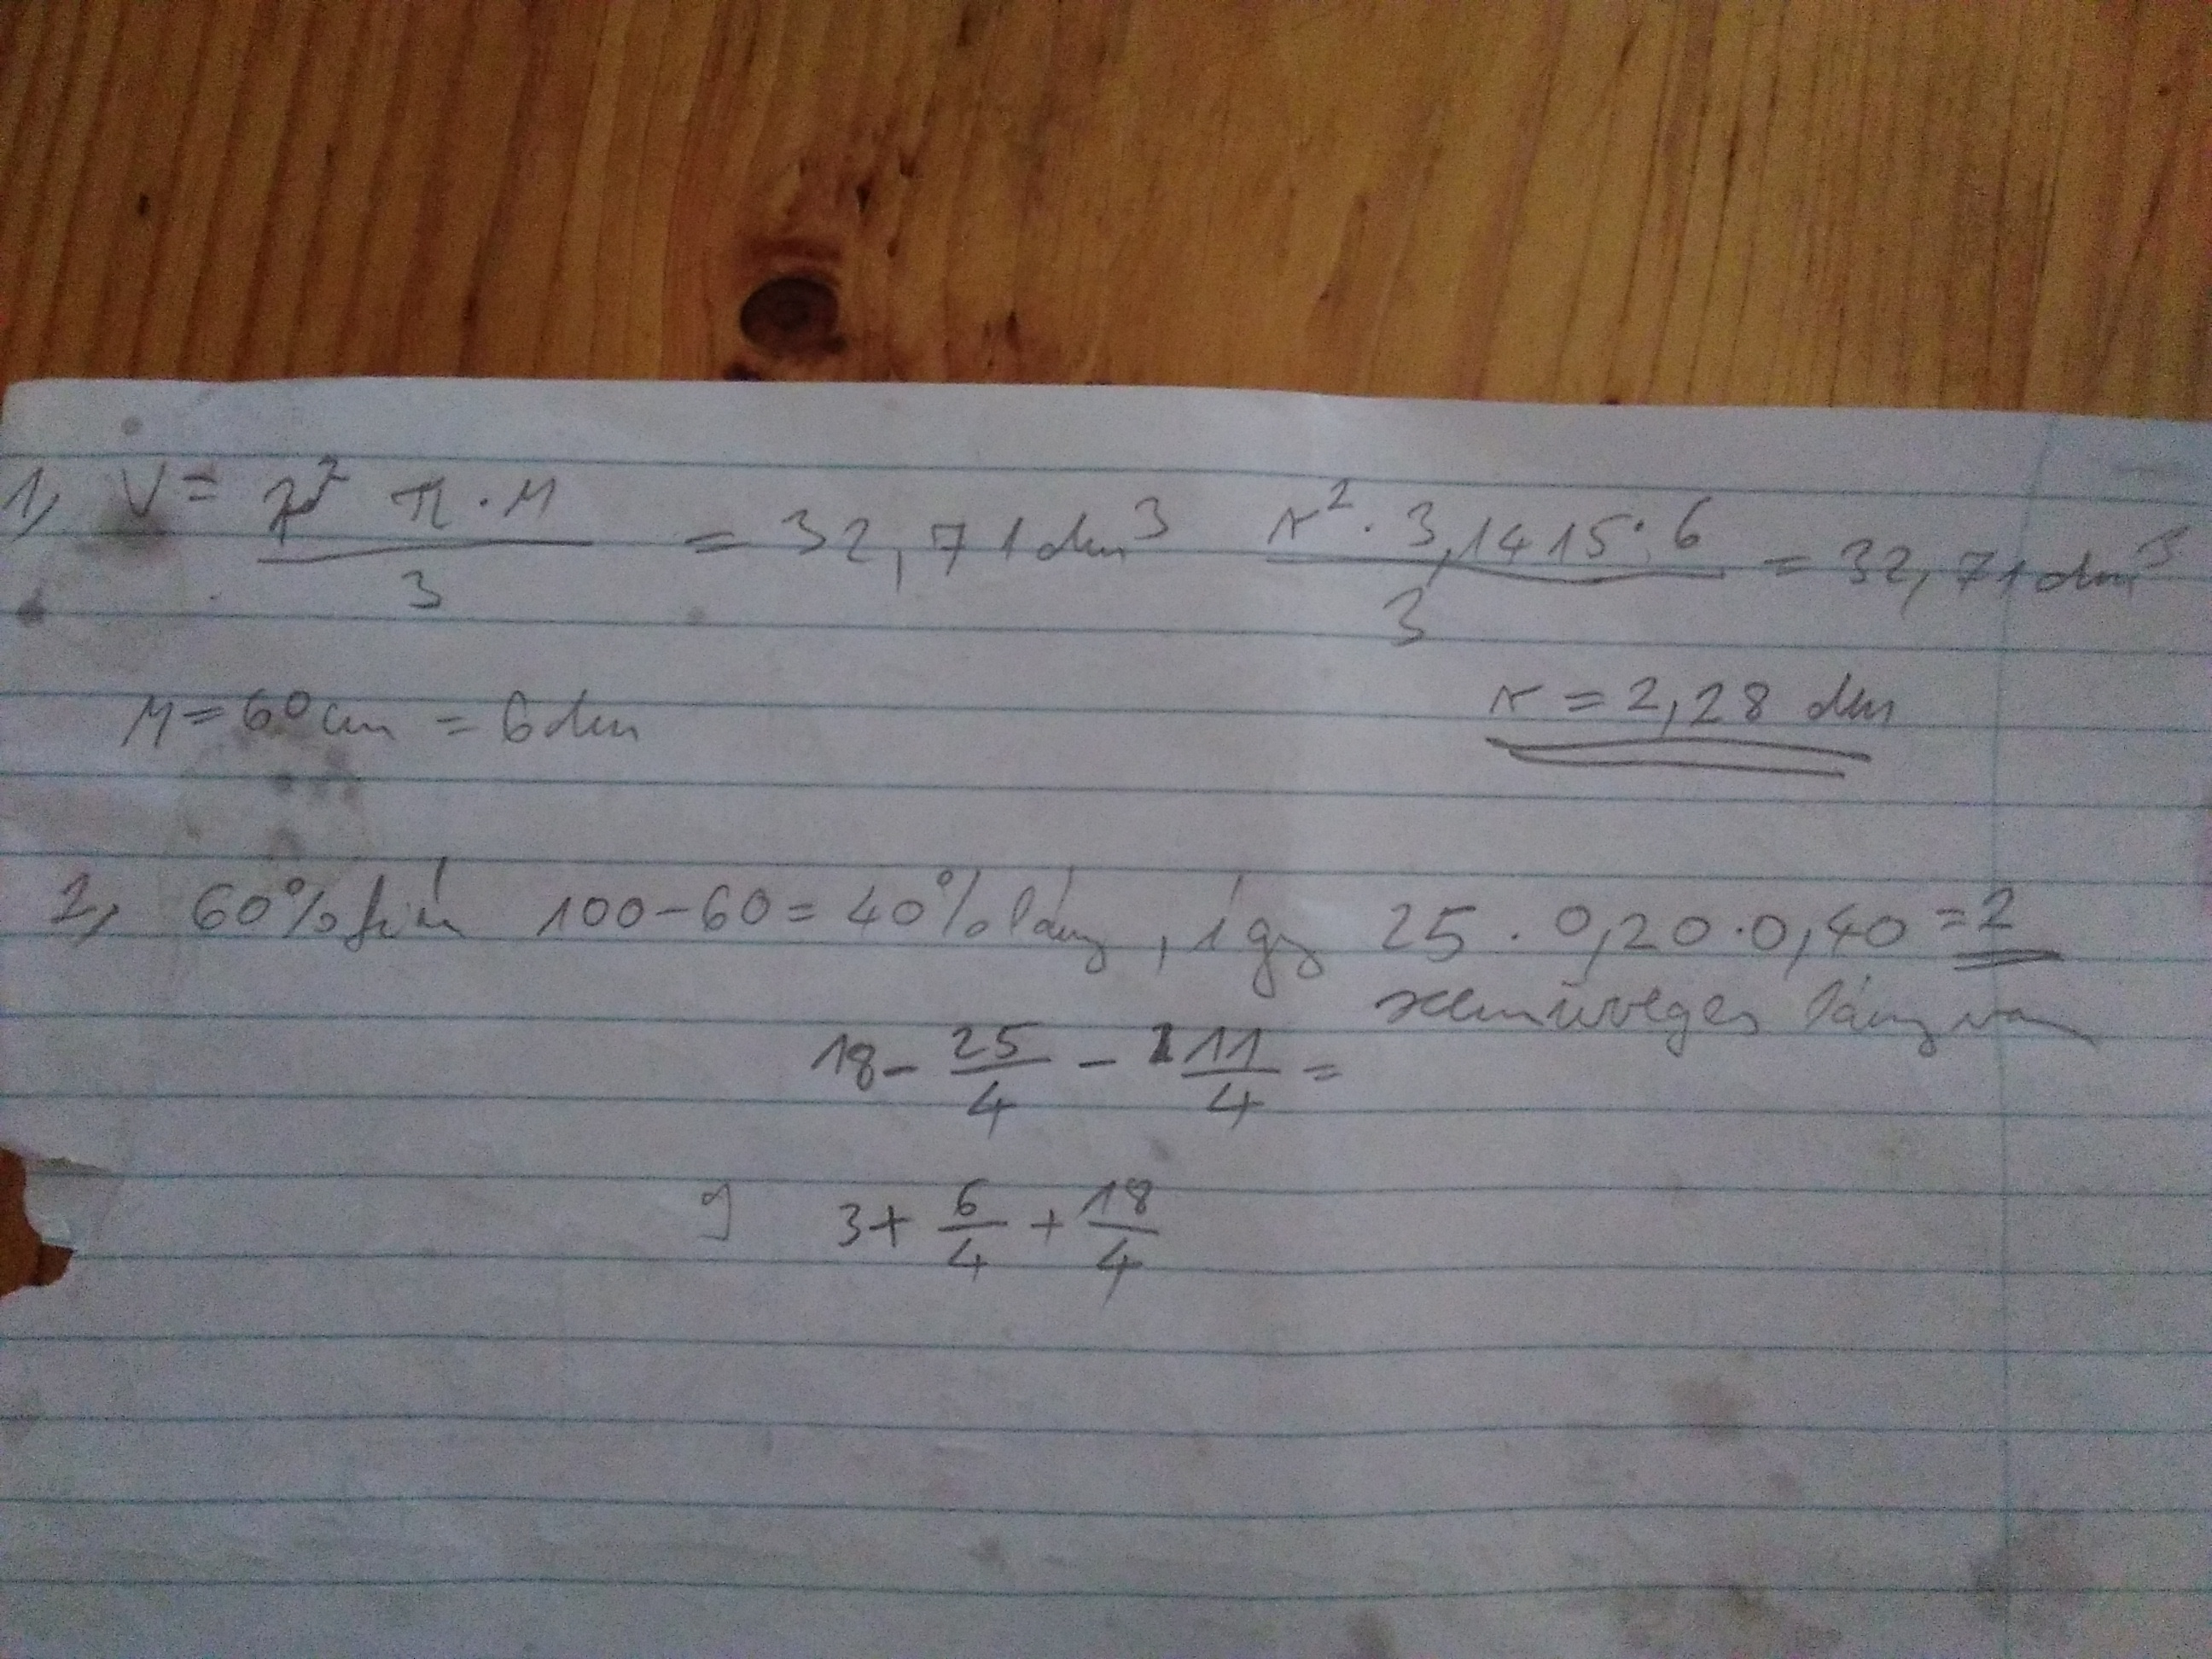 1, V = r² π · M / 3 = 32,71 dm³ r² · 3,1415 · 6 / 3 = 32,71 dm³
M = 60 cm = 6 dm r = 2,28 dm
2, 60% fiú 100-60 = 40% lány, így 25 · 0,20 · 0,40 = 2
szemüveges lány van
18 - 25/4 - 11/4 =
3 + 6/4 + 18/4